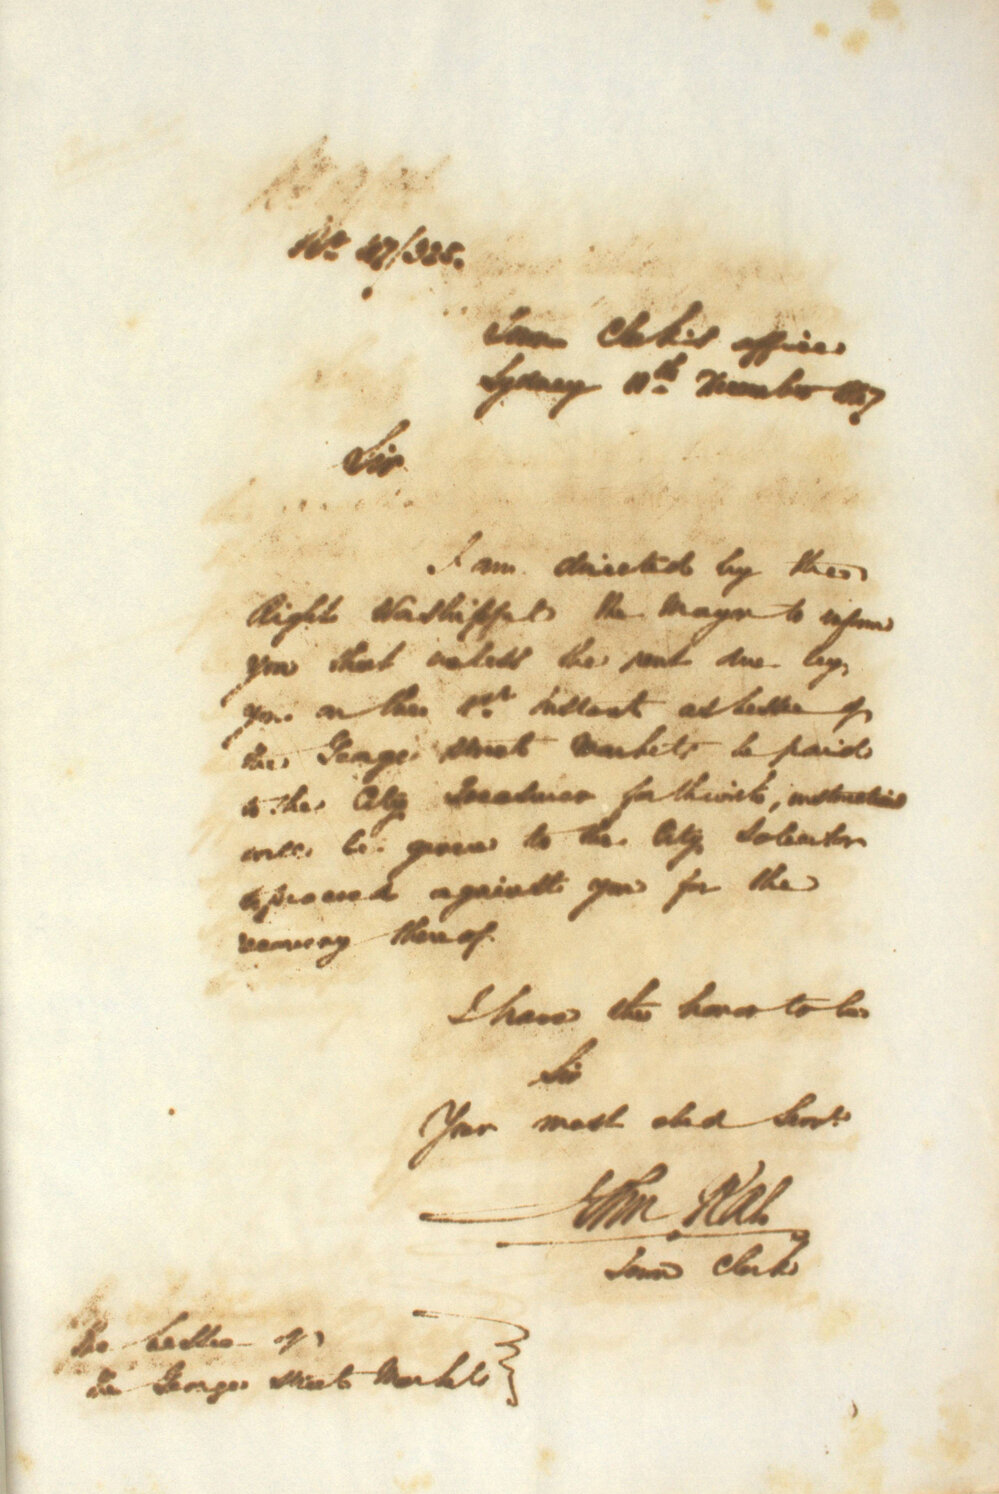 No 57/325.
Town Clerk's office
Sydney 11th November 1857
Sir
I am directed by the
Right Worshipful the Mayor to inform
you that unless the rent due by
you on the 1st instant as Lessee of
the George Street Markets be paid
to the City Treasurer forthwith, instructions
will be given to the City Solicitor
to proceed against you for the
recovery thereof.
I have the honor to be
Sir
Your most obed Servt
John
Town Clerk
The Lessee of
the George Street Markets